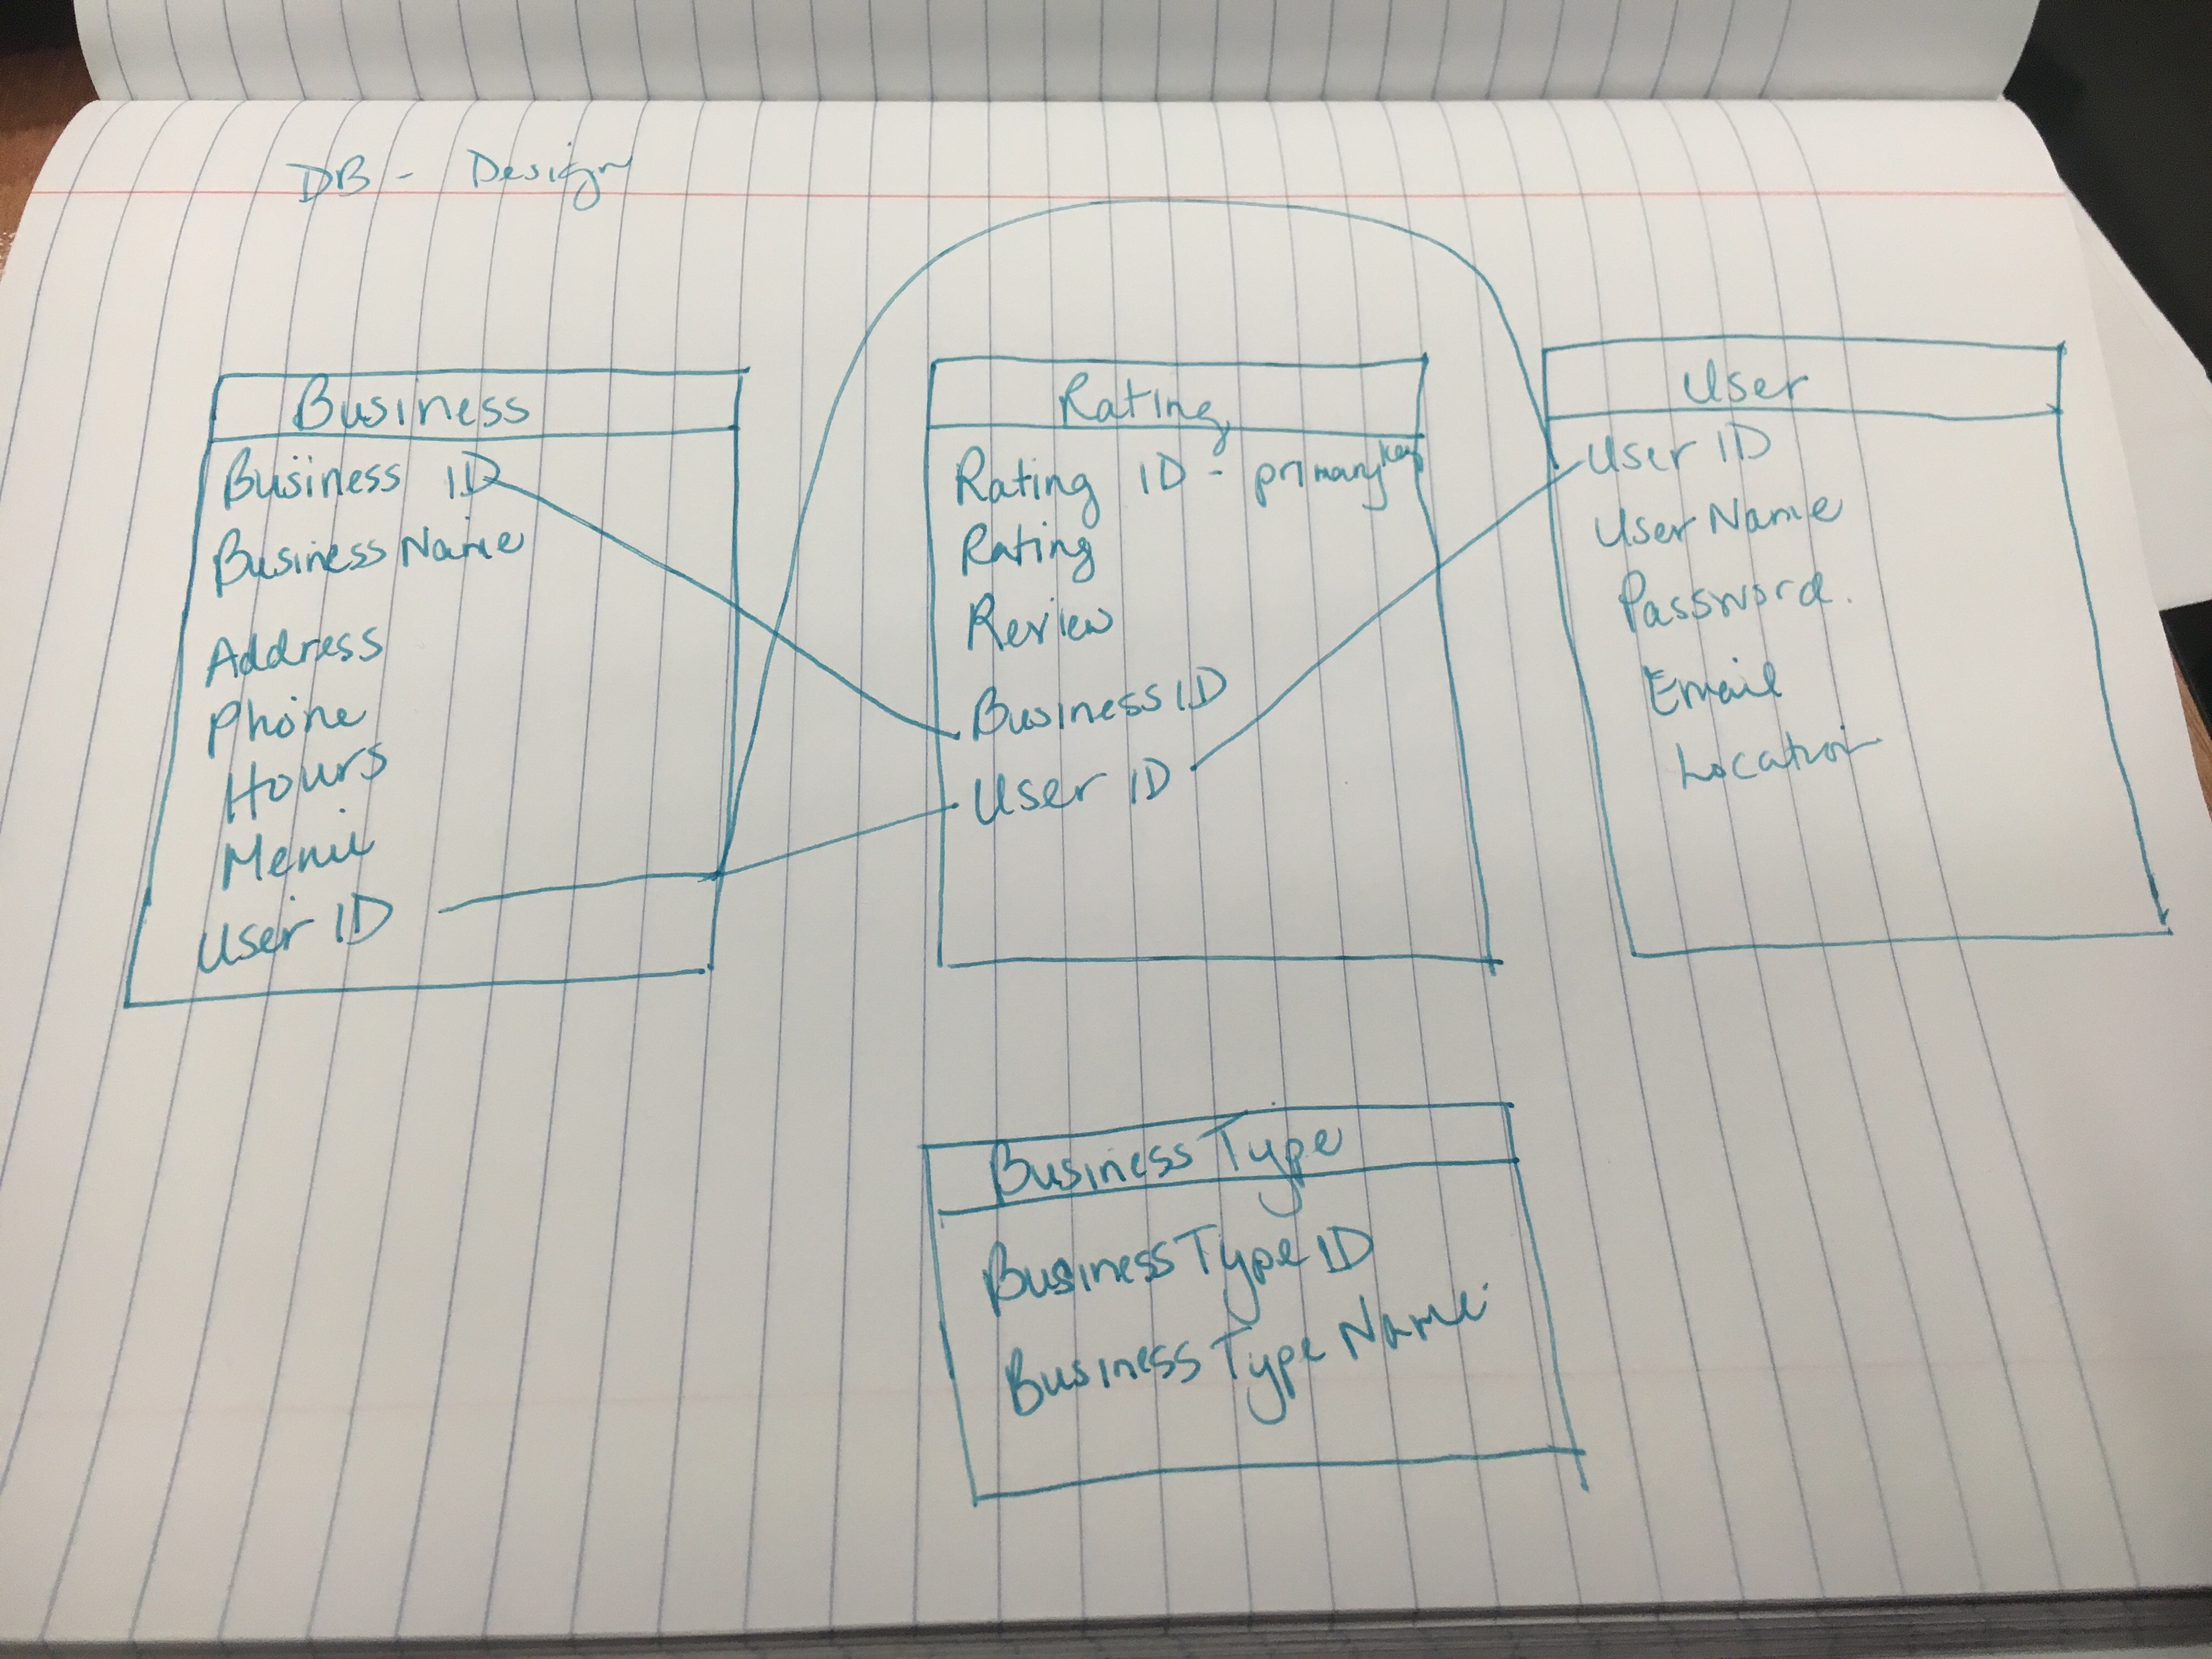 DB - Design
Business
Business ID
Business Name
Address
Phone
Hours
Menu
User ID
Rating
Rating ID - primary key
Rating
Review
Business ID
User ID
User
User ID
User Name
Password.
Email
Location
Business Type
Business Type ID
Business Type Name